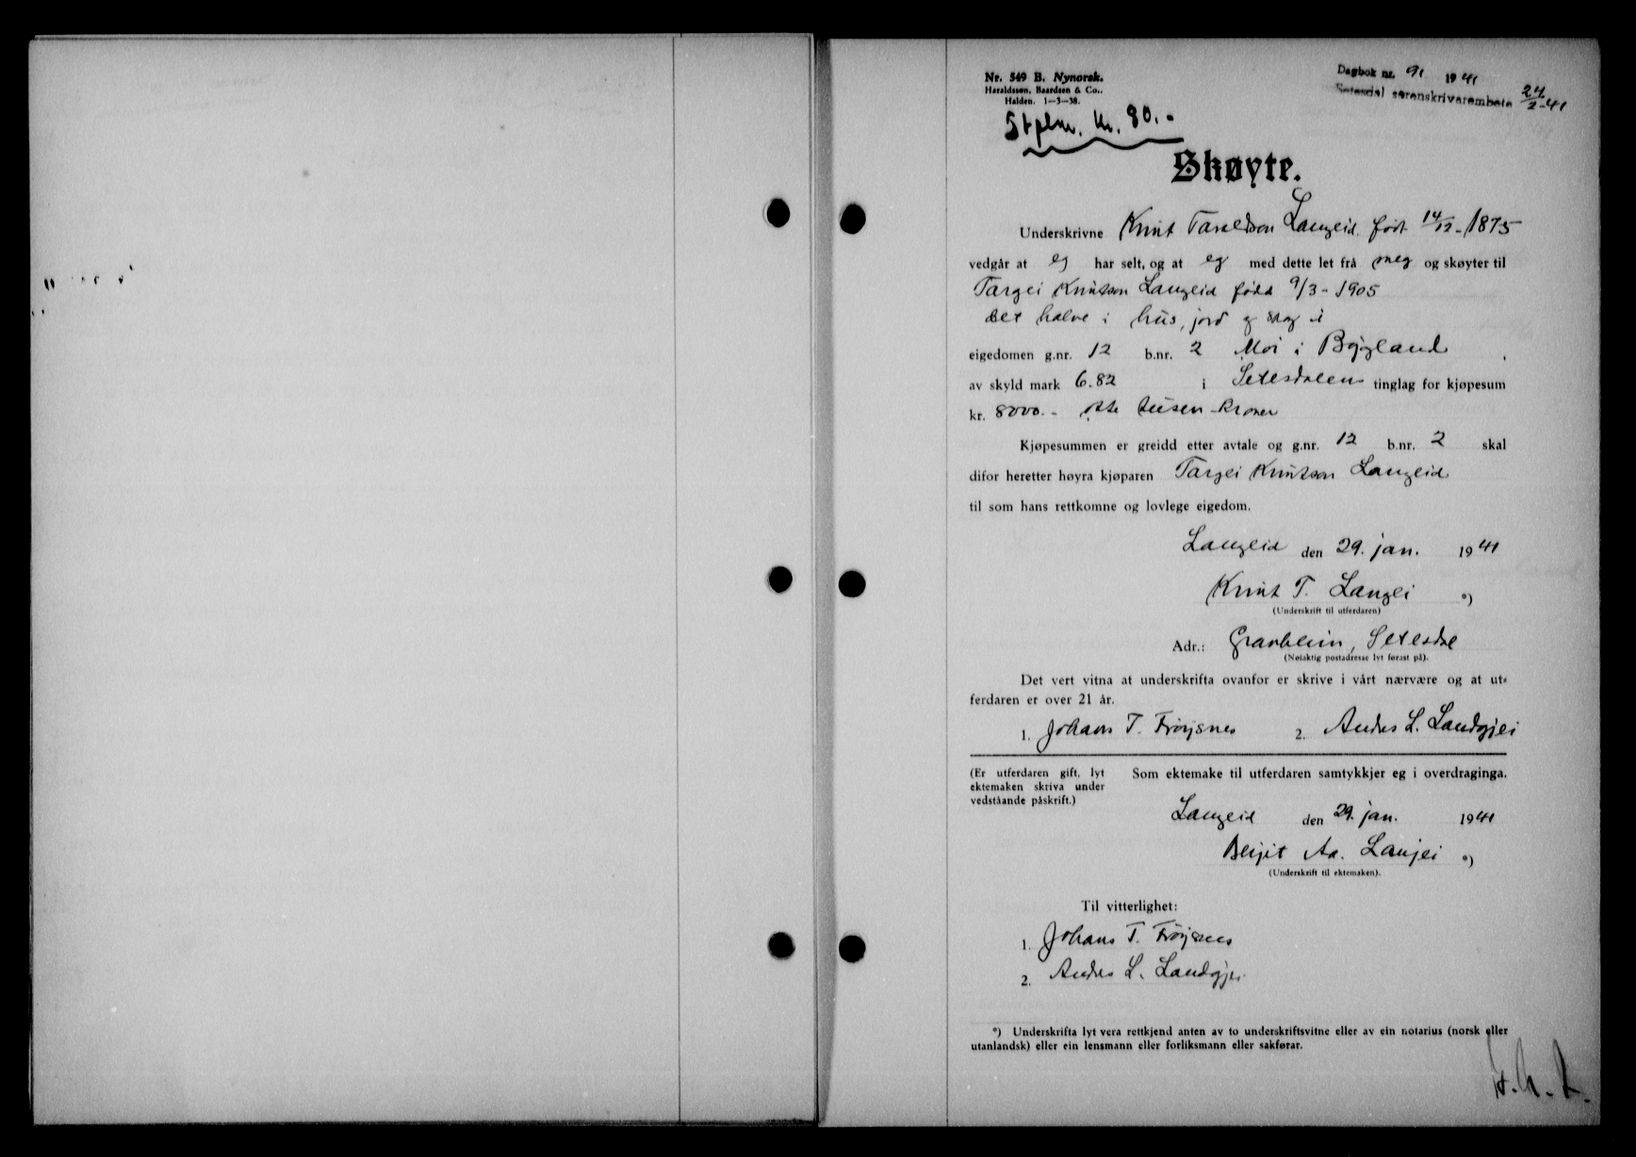 Nr. 549 B. Nynorsk.
Haraldssen, Baardsen & Co..
Halden. 1—3—38.
Dagbok nr. 91 1941
Setesdal sorenskrivarembete 24/2-41
Stplm. kr. 80.-
Skøyte.
Underskrivne Knut Taraldson Langeid. født 14/12-1875
vedgår at eg har selt, og at eg med dette let frå meg og skøyter til
Targei Knutson Langeid født 9/3-1905
det halve i hus, jord og skog i
eigedomen g.nr. 12 b.nr. 2 Moi i Bygland
av skyld mark 6.82 i Setesdalens tinglag for kjøpesum
kr. 8000.- otte tusen kroner
Kjøpesummen er greidd etter avtale og g.nr. 12 b.nr. 2 skal
difor heretter høyra kjøparen Targei Knutson Langeid
til som hans rettkomne og lovlege eigedom.
Langeid den 29. jan. 1941
Knut T. Langei *)
(Underskrift til utferdaren)
Adr.: Granheim, Setesdal
(Nøiaktig postadresse lyt førast på).
Det vert vitna at underskrifta ovanfor er skrive i vårt nærvære og at ut-
ferdaren er over 21 år.
1. Johans T. Frøysnes 2. Andres L. Landgjei
(Er utferdaren gift, lyt
ektemaken skriva under
vedståande påskrift.)
Som ektemake til utferdaren samtykkjer eg i overdraginga.
Langeid den 29. jan. 1941
Berjit Aa. Langei *)
(Underskrift til ektemaken).
Til vitterlighet:
1. Johans T. Frøysnes
2. Andres L. Landgjei
*) Underskrifta lyt vera rettkjend anten av to underskriftsvitne eller av ein notarius (norsk eller
utanlandsk) eller ein lensmann eller forliksmann eller sakførar.